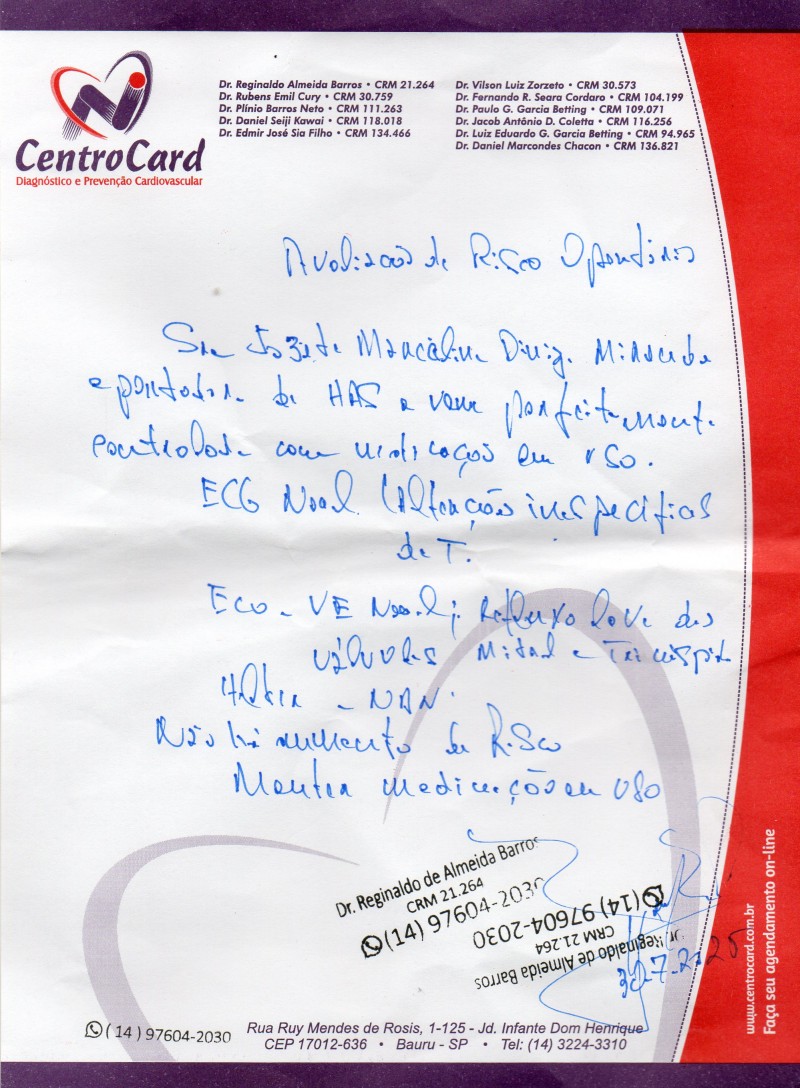 CentroCard
Diagnóstico e Prevenção Cardiovascular
Dr. Reginaldo Almeida Barros • CRM 21.264
Dr. Rubens Emil Cury • CRM 30.759
Dr. Plínio Barros Neto • CRM 111.263
Dr. Daniel Seiji Kawai • CRM 118.018
Dr. Edmir José Sia Filho • CRM 134.466
Dr. Vilson Luiz Zorzeto • CRM 30.573
Dr. Fernando R. Seara Cordaro • CRM 104.199
Dr. Paulo G. Garcia Betting • CRM 109.071
Dr. Jacob Antônio D. Coletta • CRM 116.256
Dr. Luiz Eduardo G. Garcia Betting • CRM 94.965
Dr. Daniel Marcondes Chacon • CRM 136.821
Avaliação de Risco Operatório
Sra Diniz
e portadora de HAS e vem perfeitamente
controlada com medicação em uso.
ECG Noal (Alterações inespecíficas
de T.
Eco - VE Refluxo leve das
válvulas Mitral e Tricúspide
Não há aumento de Risco
Manter medicações em uso
Dr. Reginaldo de Almeida Barros
CRM 21.264
(14) 97604-2030
(14) 97604-2030
CRM 21.264
Dr. Reginaldo de Almeida Barros
7.2025
(14) 97604-2030
Rua Ruy Mendes de Rosis, 1-125 - Jd. Infante Dom Henrique
CEP 17012-636 • Bauru - SP • Tel: (14) 3224-3310
www.centrocard.com.br
Faça seu agendamento on-line